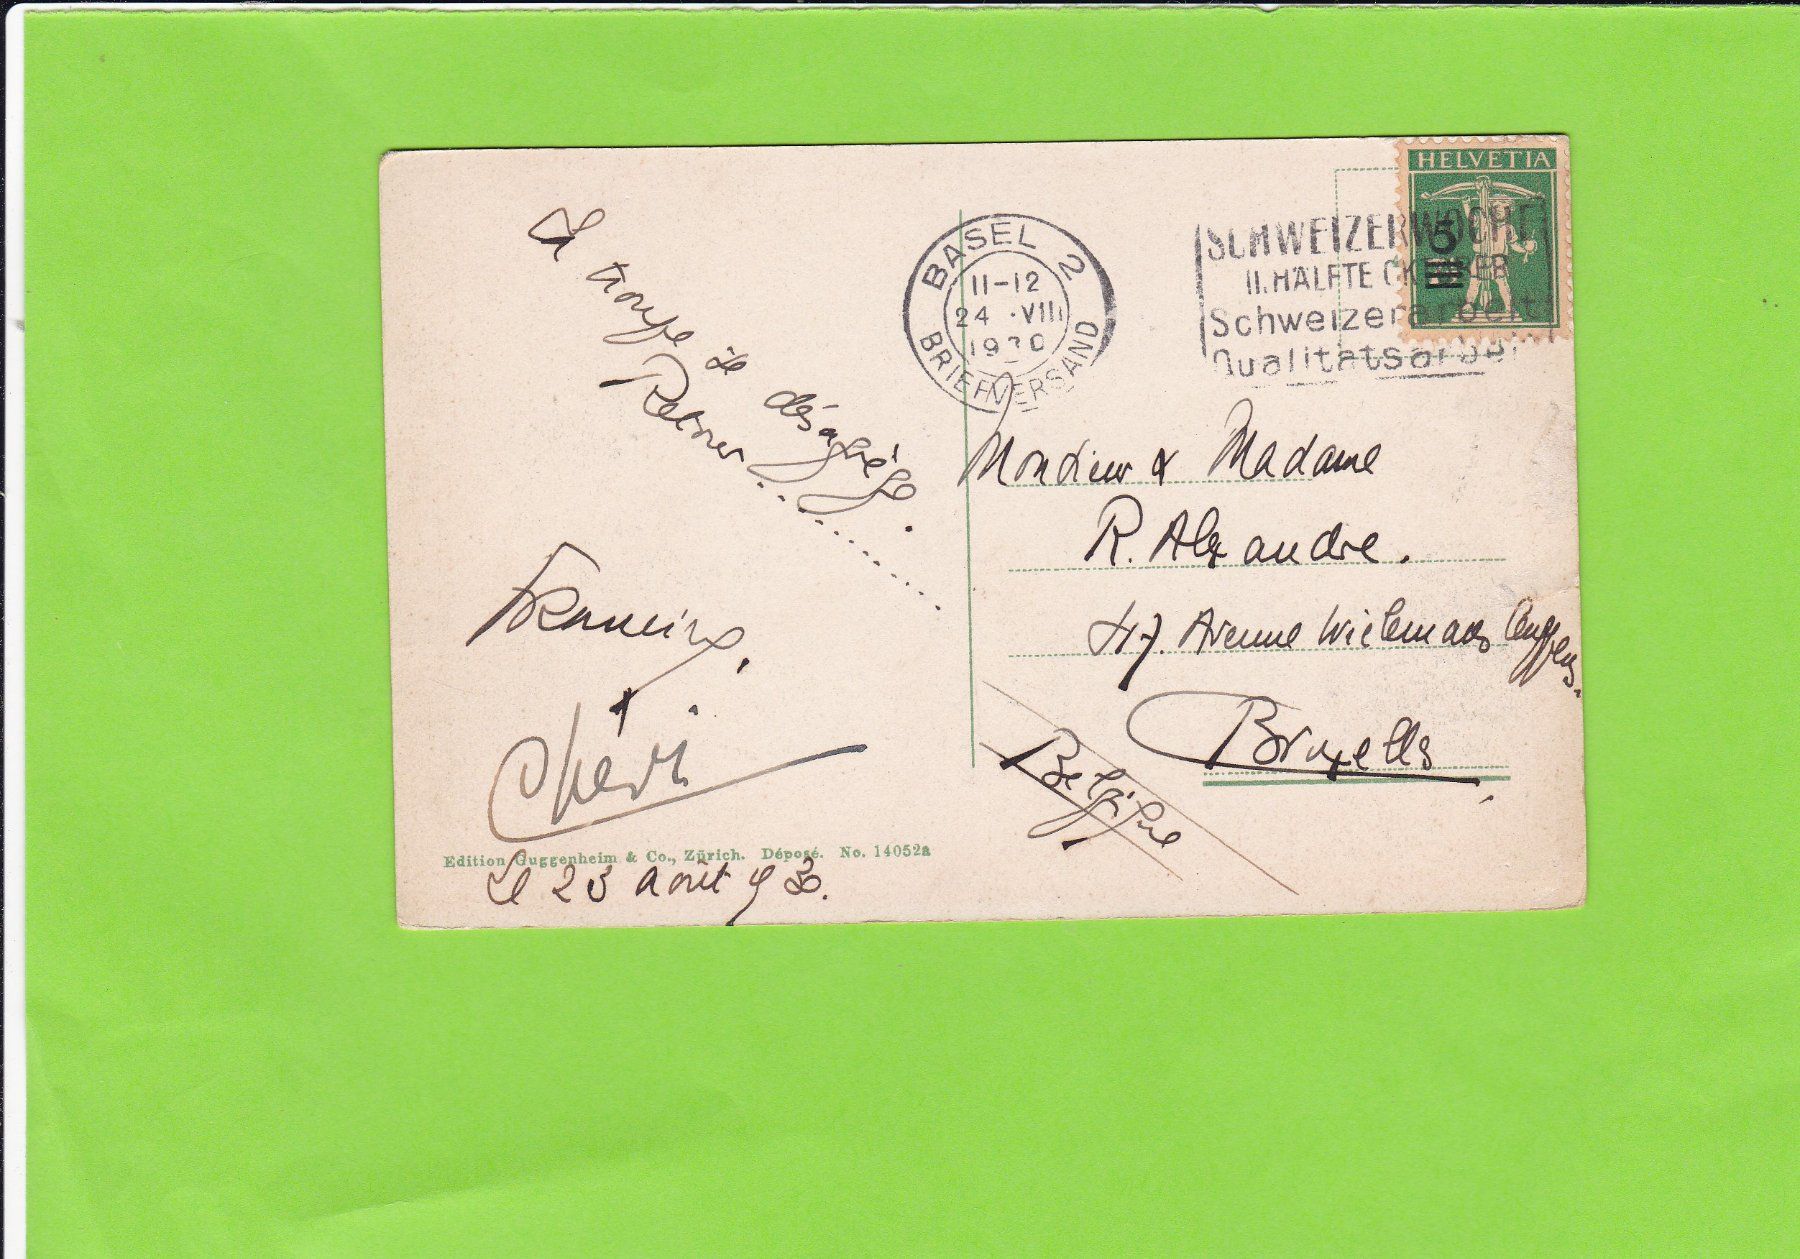 La troupe se désagrège.
Retour..............
Francine.
Chéri
Edition Guggenheim & Co., Zürich. Déposé. No. 14052a
Le 23 Août 1930.
BASEL 2
11-12
24.VIII
1930
BRIEFVERSAND
SCHWEIZERWOCHE
II. HÄLFTE OKTOBER
Schweizerarbeit
Qualitätsarbeit
HELVETIA
5
Monsieur & Madame
R. Alexandre.
Avenue Wielemans Ceuppens.
Bruxelles
Belgique